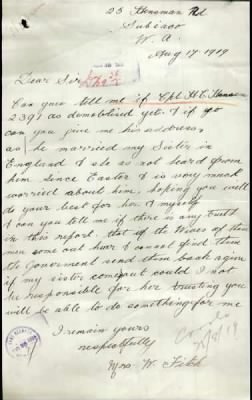 25 Hensman Rd
Subiaco
W. A.
Aug 17 1919
Dear Sir
Can you tell me if Cpl H. C.
2391 as demobilised yet. & if so
can you give me his address,
as he married my Sister in
England & she as not heard from
him since Easter & is very much
worried about him, hoping you will
do your best for her & myself
& can you tell me if there is any truth
in this report, that if the Wives of these
men come out hear & cannot find them
the Goverment send them back again
if my sister comes out could I not
be responsible for her trusting you
will be able to do something for me
I remain yours
respectfully
Mrs W.